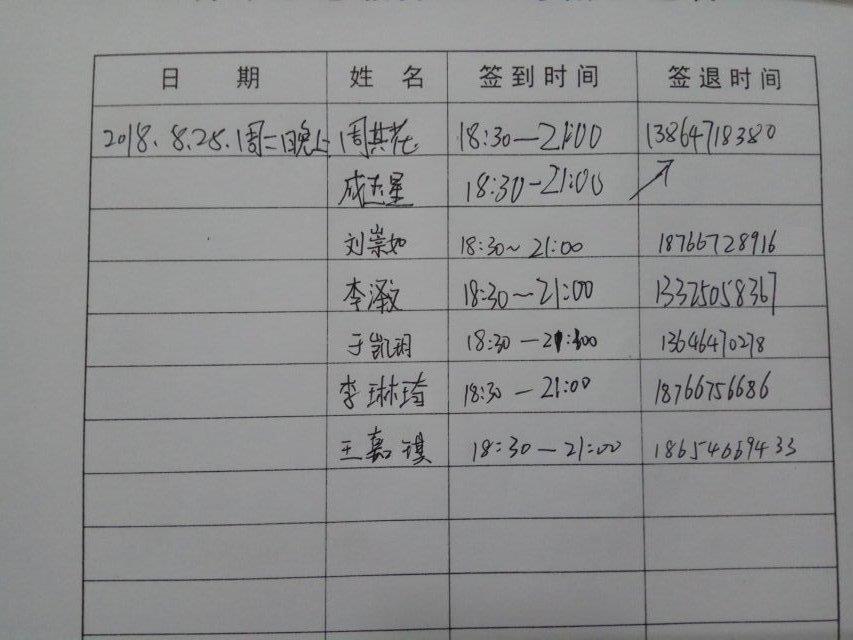 日 期 姓 名 签到时间 签退时间
2018.8.28.周二晚上 周其花 18:30—21:00 13864718380
18:30-21:00
刘崇如 18:30~21:00 18766728916
李泽文 18:30—21:00 13325058367
于凯玥 18:30—21:00 13646470278
李琳琦 18:30—21:00 18766756686
王嘉琪 18:30—21:00 18654669433